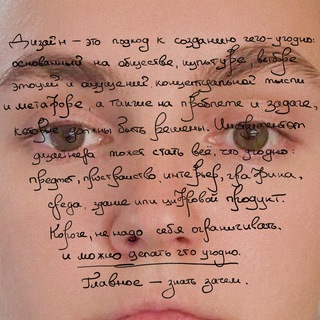 Дизайн — это подход к созданию чего-угодно:
основанный на обществе, культуре, выборе
эмоций и ощущений, концептуальной мысли
и метафоре, а также на проблеме и задаче,
которые должны быть решены. Инструментом
дизайнера может стать всё, что угодно:
предмет, пространство, интерьер, графика,
среда, здание или цифровой продукт.
Короче, не надо себя ограничивать,
и можно делать что угодно.
Главное — знать зачем.